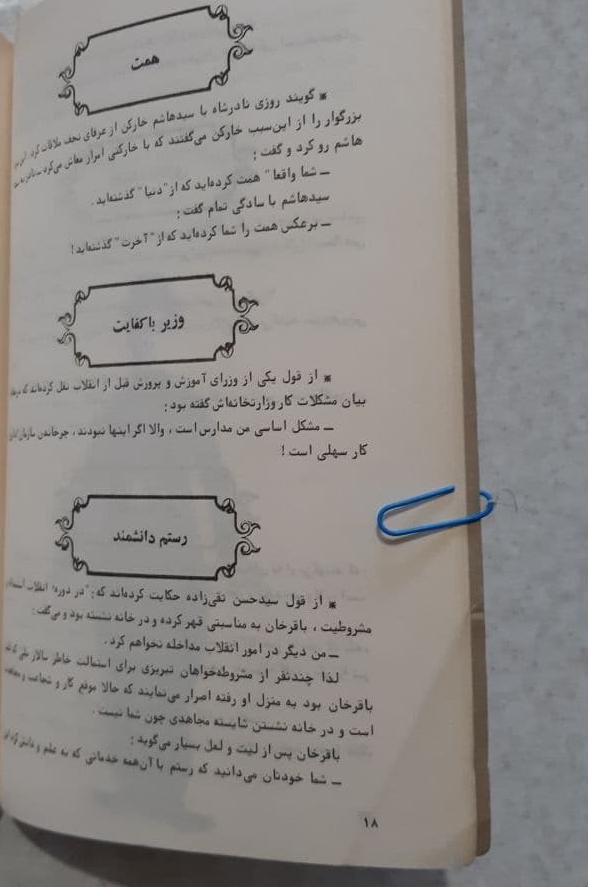 همت
* گویند روزی نادرشاه با سیدهاشم خارکن از عرفای نجف ملاقات کرد.
بزرگوار را از این‌سبب خارکن می‌گفتند که با خارکنی امرار معاش می‌کرد
هاشم رو کرد و گفت :
ــ شما واقعا" همت کرده‌اید که از "دنیا" گذشته‌اید .
سیدهاشم با سادگی تمام گفت :
ــ برعکس همت را شما کرده‌اید که از "آخرت" گذشته‌اید !
وزیر باکفایت
* از قول یکی از وزرای آموزش و پرورش قبل از انقلاب نقل کرده‌اند که
بیان مشکلات کار وزارتخانه‌اش گفته بود :
ــ مشکل اساسی من مدارس است ، والا اگر اینها نبودند ، چرخاندن سازمان
کار سهلی است !
رستم دانشمند
* از قول سیدحسن تقی‌زاده حکایت کرده‌اند که : "در دوره‌ء انقلاب
مشروطیت ، باقرخان به مناسبتی قهر کرده و در خانه نشسته بود و می‌گفت :
ــ من دیگر در امور انقلاب مداخله نخواهم کرد .
لذا چندنفر از مشروطه‌خواهان تبریزی برای استمالت خاطر سالار ملی که
باقرخان بود به منزل او رفته اصرار می‌نمایند که حالا موقع کار و شجاعت و
است و در خانه نشستن شایسته مجاهدی چون شما نیست .
باقرخان پس از لیت و لعل بسیار می‌گوید :
ــ شما خودتان می‌دانید که رستم با آن‌همه خدماتی که به علم و دانش
۱۸